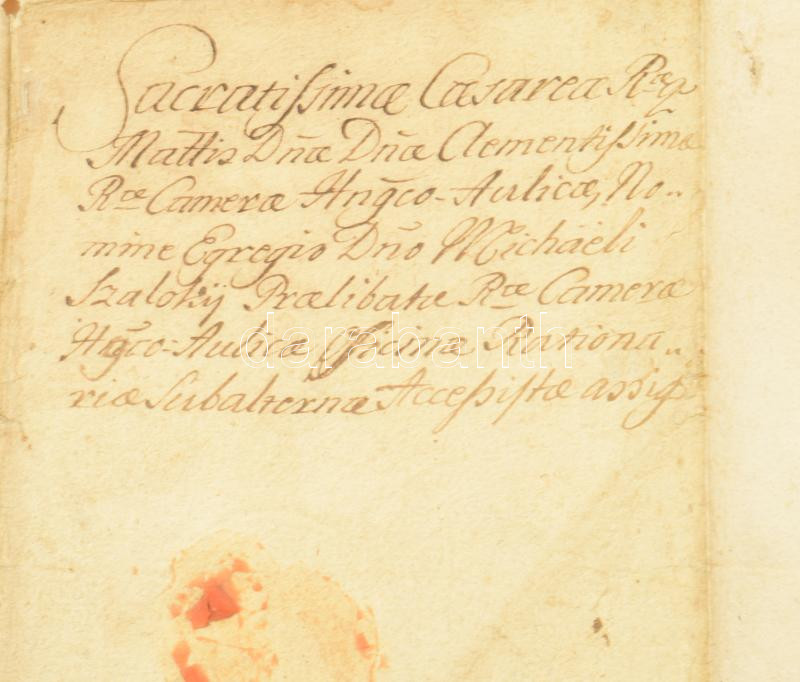 Sacratissimæ Cæsareæ Ræq
Mattis Dnæ Dnæ Clementissimæ
Ræ Cameræ Hngco-Aulicæ, No..
mine Egregio Dno Michaëli
Szalokÿ Prælibatæ Ræ Cameræ
Hgco-Aulicæ Officinæ Rationa..
riæ Subalternæ Accessistæ assig
darabanth